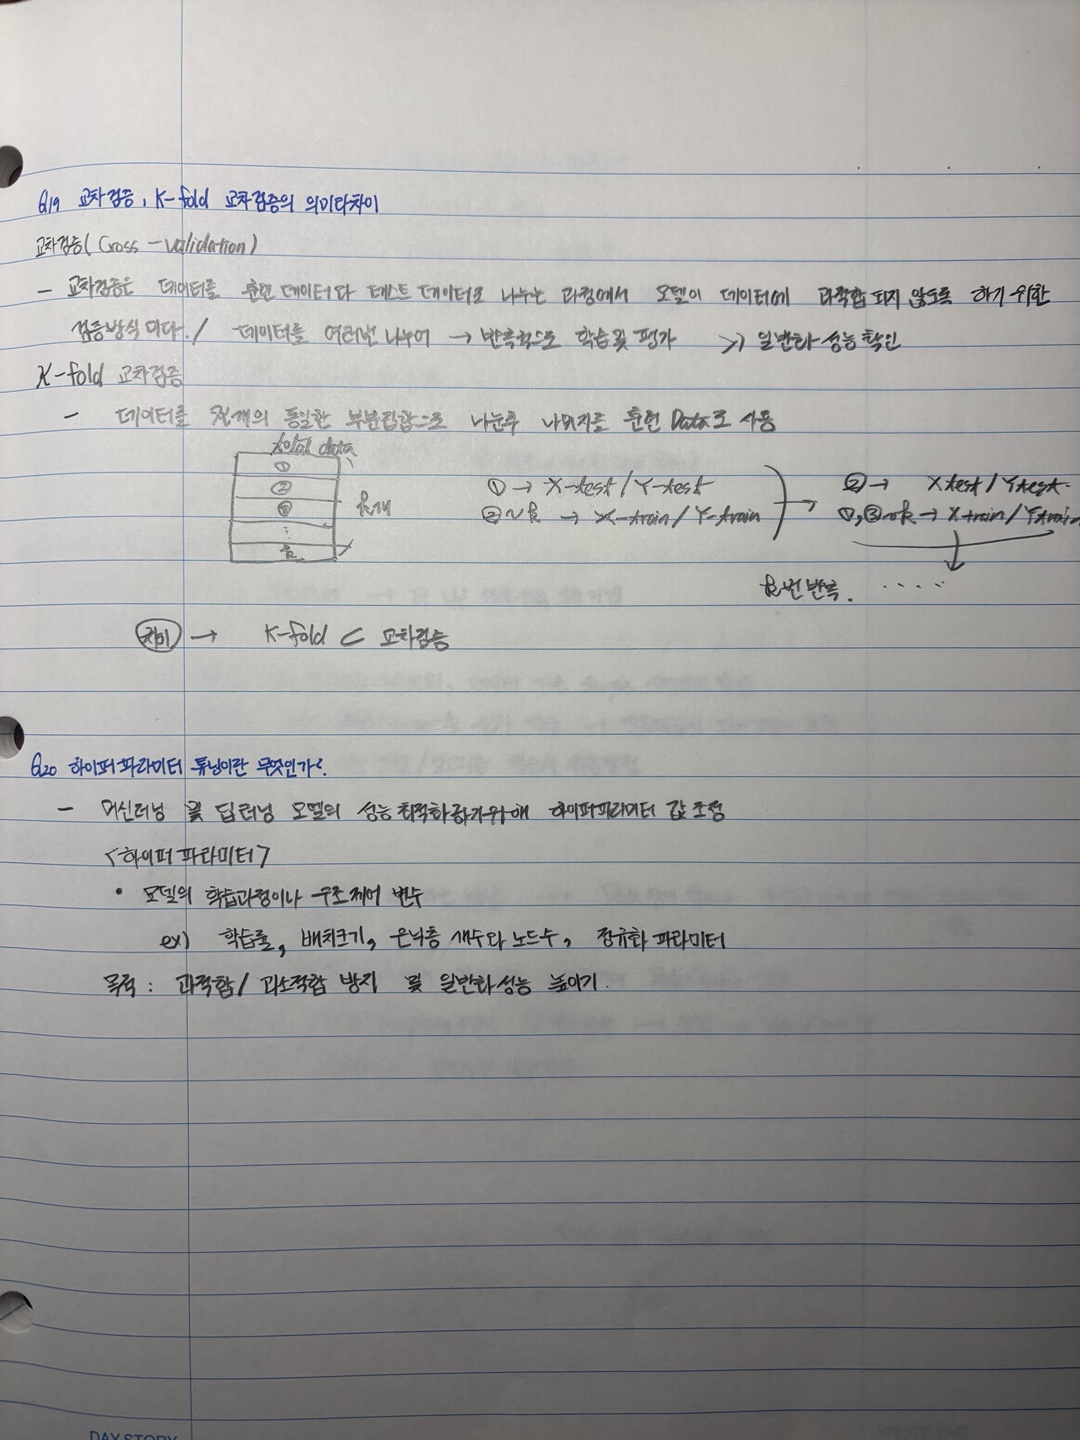 Q19 교차검증, K-fold 교차검증의 의미와 차이
교차검증( Cross-validation)
- 교차검증은 데이터를 훈련 데이터와 테스트 데이터로 나누는 과정에서 모델이 데이터에 과적합 되지 않도록 하기 위한
검증방식 이다. / 데이터를 여러번 나누어 → 반복적으로 학습 및 평가 》 일반화 성능 확인
K-fold 교차검증
- 데이터를 k개의 동일한 부분집합으로 나눈후 나머지를 훈련 Data로 사용
total data
①
②
③
⋮
k
k개
① → X-test / Y-test
②~k → X-train / Y-train
→
② → Xtest / Ytest
①,③~k → Xtrain / Ytrain
k번 반복. .....
차이 → K-fold ⊂ 교차검증
Q20 하이퍼 파라미터 튜닝이란 무엇인가?
- 머신러닝 및 딥러닝 모델의 성능 최적화하기위해 하이퍼파라미터 값 조정
<하이퍼 파라미터>
• 모델의 학습과정이나 구조 제어 변수
ex) 학습률, 배치크기, 은닉층 개수와 노드수, 정규화 파라미터
목적 : 과적합/ 과소적합 방지 및 일반화 성능 높이기.
DAY STORY